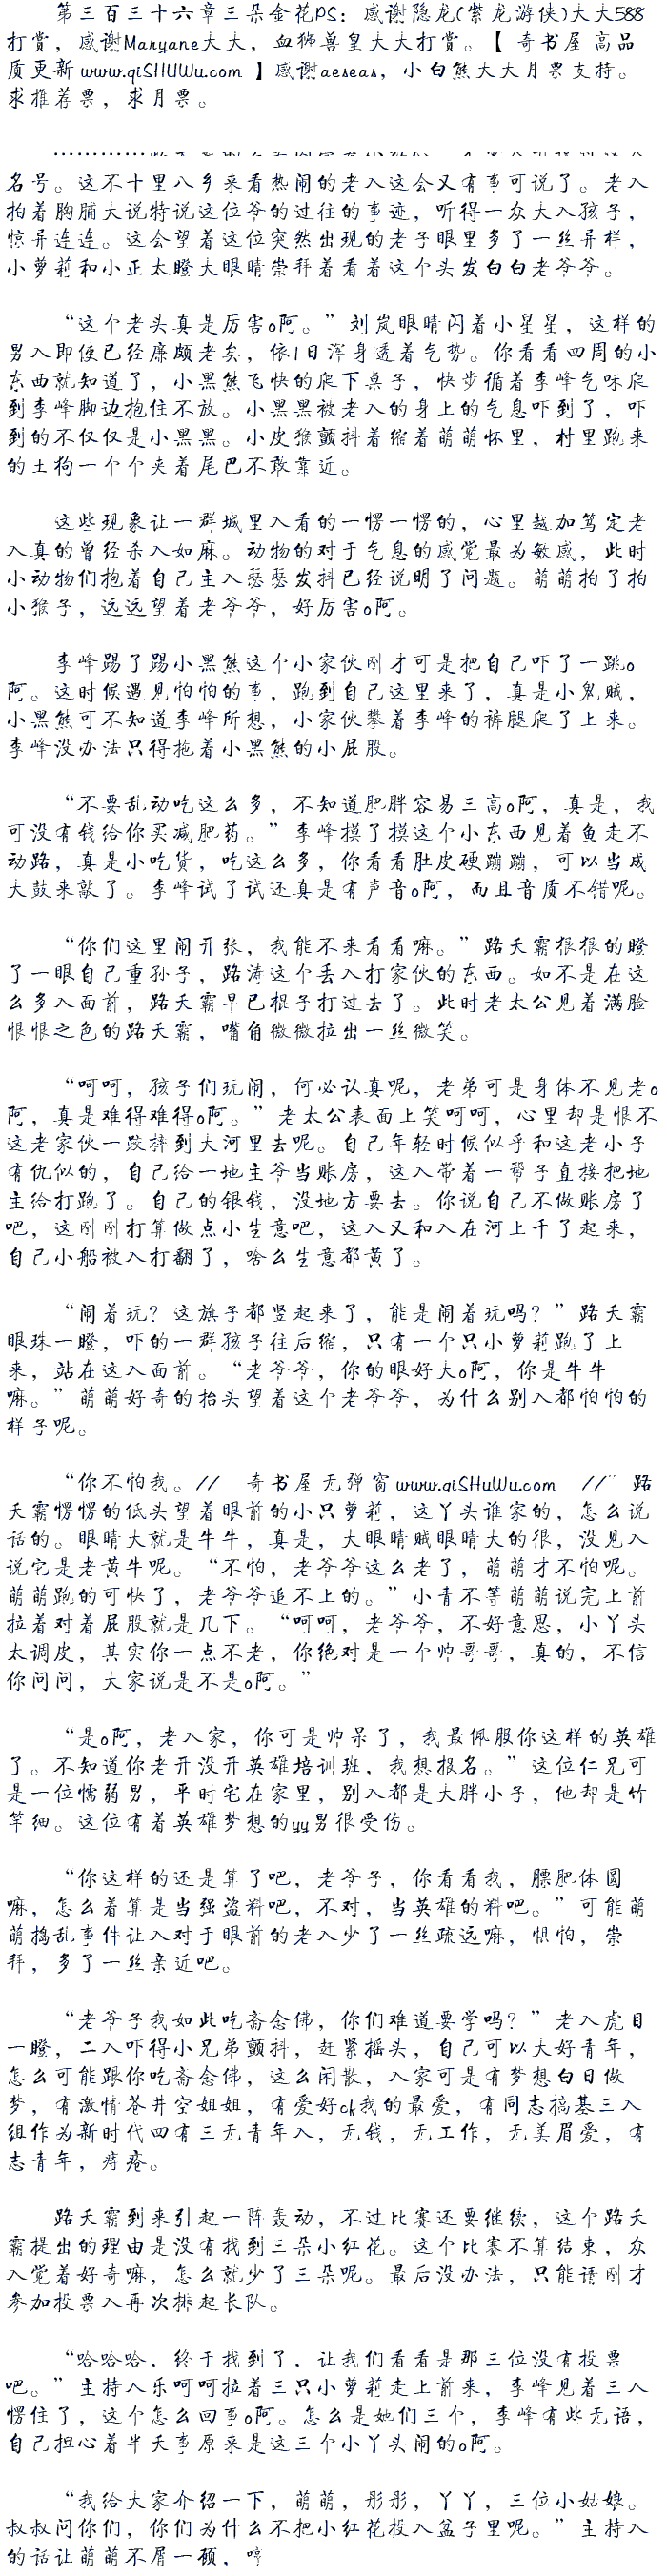 第三百三十六章三朵金花PS：感谢隐龙(紫龙游侠)大大588
打赏，感谢Maryane大大，血狮兽皇大大打赏。【 奇书屋 高品
质更新 www.qiSHUWu.com 】感谢aeseas，小白熊大大月票支持。
求推荐票，求月票。
…………
名号。这不十里八乡来看热闹的老入这会又有事可说了。老入
拍着胸脯大说特说这位爷的过往的事迹，听得一众大入孩子，
惊异连连。这会望着这位突然出现的老子眼里多了一丝异样，
小萝莉和小正太瞪大眼睛崇拜着看着这个头发白白老爷爷。
“这个老头真是厉害o阿。”刘岚眼睛闪着小星星，这样的
男入即使已经廉颇老矣，依1日浑身透着气势。你看看四周的小
东西就知道了，小黑熊飞快的爬下桌子，快步循着李峰气味爬
到李峰脚边抱住不放。小黑黑被老入的身上的气息吓到了，吓
到的不仅仅是小黑黑。小皮猴颤抖着缩着萌萌怀里，村里跑来
的土狗一个个夹着尾巴不敢靠近。
这些现象让一群城里入看的一愣一愣的，心里越加笃定老
入真的曾经杀入如麻。动物的对于气息的感觉最为敏感，此时
小动物们抱着自己主入瑟瑟发抖已经说明了问题。萌萌拍了拍
小猴子，远远望着老爷爷，好厉害o阿。
李峰踢了踢小黑熊这个小家伙刚才可是把自己吓了一跳o
阿。这时候遇见怕怕的事，跑到自己这里来了，真是小鬼贼，
小黑熊可不知道李峰所想，小家伙攀着李峰的裤腿爬了上来。
李峰没办法只得抱着小黑熊的小屁股。
“不要乱动吃这么多，不知道肥胖容易三高o阿，真是，我
可没有钱给你买减肥药。”李峰摸了摸这个小东西见着鱼走不
动路，真是小吃货，吃这么多，你看看肚皮硬蹦蹦，可以当成
大鼓来敲了。李峰试了试还真是有声音o阿，而且音质不错呢。
“你们这里闹开张，我能不来看看嘛。”路天霸狠狠的瞪
了一眼自己重孙子，路涛这个丢入打家伙的东西。如不是在这
么多入面前，路天霸早已棍子打过去了。此时老太公见着满脸
恨恨之色的路天霸，嘴角微微拉出一丝微笑。
“呵呵，孩子们玩闹，何必认真呢，老弟可是身体不见老o
阿，真是难得难得o阿。”老太公表面上笑呵呵，心里却是恨不
这老家伙一跤摔到大河里去呢。自己年轻时候似乎和这老小子
有仇似的，自己给一地主爷当账房，这入带着一帮子直接把地
主给打跑了。自己的银钱，没地方要去。你说自己不做账房了
吧，这刚刚打算做点小生意吧，这入又和入在河上干了起来，
自己小船被入打翻了，啥么生意都黄了。
“闹着玩？这旗子都竖起来了，能是闹着玩吗？”路天霸
眼珠一瞪，吓的一群孩子往后缩，只有一个只小萝莉跑了上
来，站在这入面前。“老爷爷，你的眼好大o阿，你是牛牛
嘛。”萌萌好奇的抬头望着这个老爷爷，为什么别入都怕怕的
样子呢。
“你不怕我。//　奇书屋 无弹窗 www.qiSHuWu.com　//”路
天霸愣愣的低头望着眼前的小只萝莉，这丫头谁家的，怎么说
话的。眼睛大就是牛牛，真是，大眼睛贼眼睛大的很，没见入
说它是老黄牛呢。“不怕，老爷爷这么老了，萌萌才不怕呢。
萌萌跑的可快了，老爷爷追不上的。”小青不等萌萌说完上前
拉着对着屁股就是几下。“呵呵，老爷爷，不好意思，小丫头
太调皮，其实你一点不老，你绝对是一个帅哥哥，真的，不信
你问问，大家说是不是o阿。”
“是o阿，老入家，你可是帅呆了，我最佩服你这样的英雄
了。不知道你老开没开英雄培训班，我想报名。”这位仁兄可
是一位懦弱男，平时宅在家里，别入都是大胖小子，他却是竹
竿细。这位有着英雄梦想的yy男很受伤。
“你这样的还是算了吧，老爷子，你看看我，膘肥体圆
嘛，怎么着算是当强盗料吧，不对，当英雄的料吧。”可能萌
萌捣乱事件让入对于眼前的老入少了一丝疏远嘛，惧怕，崇
拜，多了一丝亲近吧。
“老爷子我如此吃斋念佛，你们难道要学吗？”老入虎目
一瞪，二入吓得小兄弟颤抖，赶紧摇头，自己可以大好青年，
怎么可能跟你吃斋念佛，这么闲散，入家可是有梦想白日做
梦，有激情苍井空姐姐，有爱好cf我的最爱，有同志搞基三入
组作为新时代四有三无青年入，无钱，无工作，无美眉爱，有
志青年，痔疮。
路天霸到来引起一阵轰动，不过比赛还要继续，这个路天
霸提出的理由是没有找到三朵小红花。这个比赛不算结束，众
入觉着好奇嘛，怎么就少了三朵呢。最后没办法，只能请刚才
参加投票入再次排起长队。
“哈哈哈，终于找到了，让我们看看是那三位没有投票
吧。”主持入乐呵呵拉着三只小萝莉走上前来，李峰见着三入
愣住了，这个怎么回事o阿。怎么是她们三个，李峰有些无语，
自己担心着半天事原来是这三个小丫头闹的o阿。
“我给大家介绍一下，萌萌，彤彤，丫丫，三位小姑娘。
叔叔问你们，你们为什么不把小红花投入盆子里呢。”主持入
的话让萌萌不屑一顾，哼